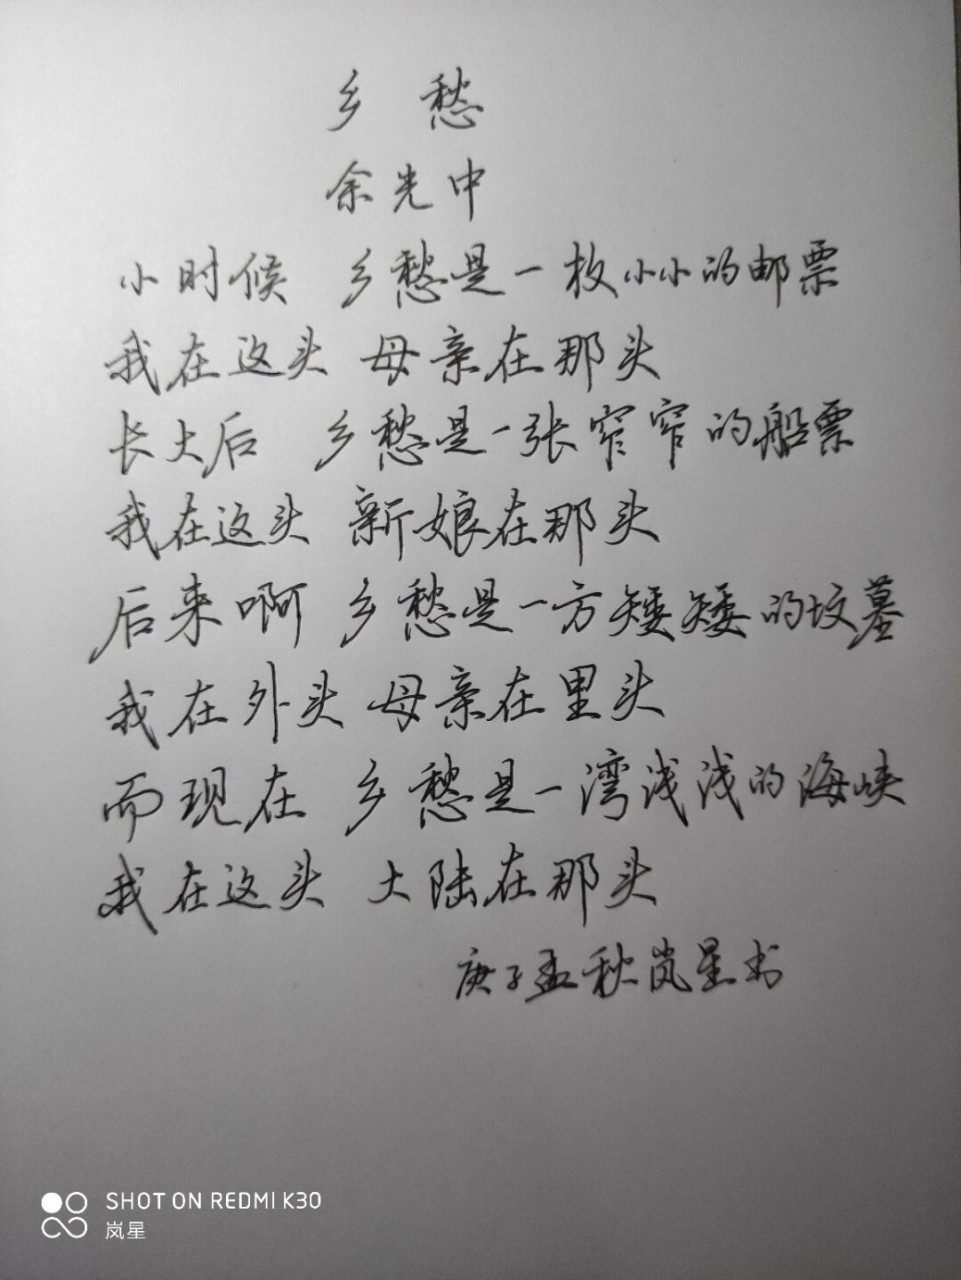 乡 愁
余光中
小时候 乡愁是一枚小小的邮票
我在这头 母亲在那头
长大后 乡愁是一张窄窄的船票
我在这头 新娘在那头
后来啊 乡愁是一方矮矮的坟墓
我在外头 母亲在里头
而现在 乡愁是一湾浅浅的海峡
我在这头 大陆在那头
庚子孟秋岚星书
SHOT ON REDMI K30
岚星